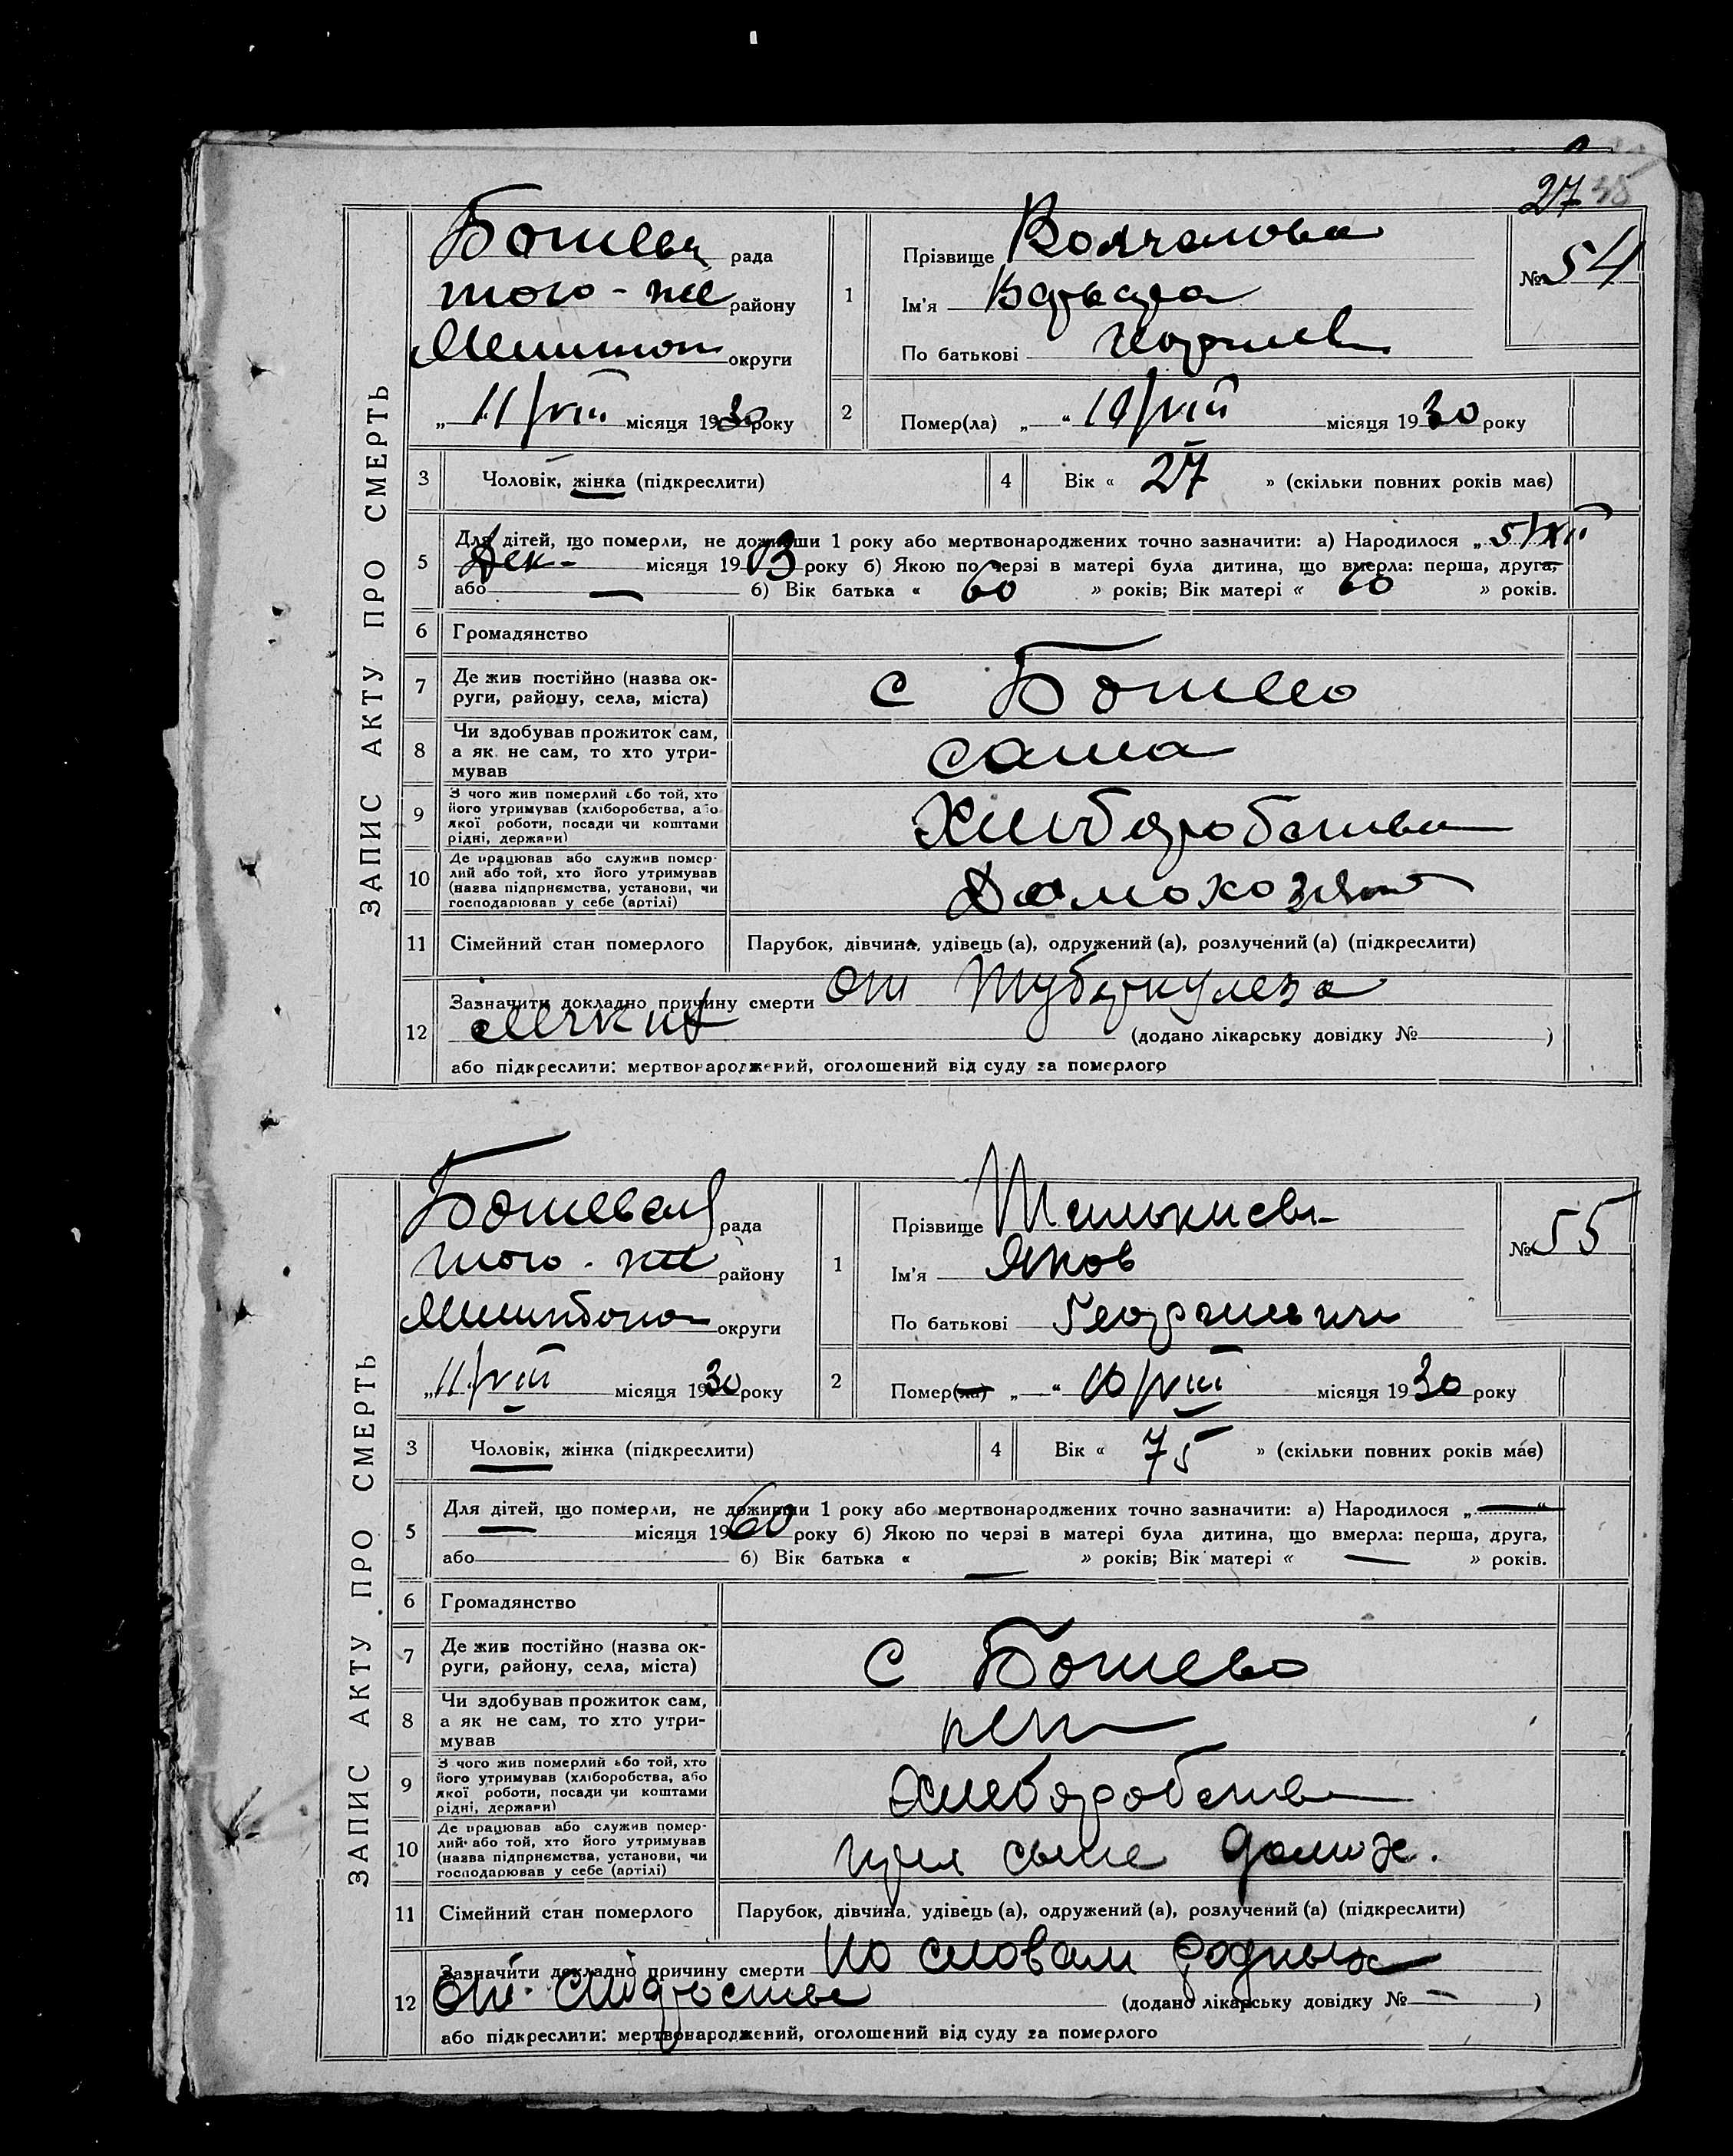 27 35
ЗАПИС АКТУ ПРО СМЕРТЬ
рада
того-же району
округи
„ 11/VIII місяця 1930 року
1
Прізвище
Ім'я Варвара
По батькові
№ 54
2
Помер(ла) „ “ 10/VIII місяця 1930 року
3
Чоловік, жінка (підкреслити)
4
Вік « 27 » (скільки повних років має)
5
Для дітей, що померли, не доживши 1 року або мертвонароджених точно зазначити: а) Народилося „ 5/XII
Дек- місяця 1903 року б) Якою по черзі в матері була дитина, що вмерла: перша, друга,
або — б) Вік батька « 60 » років; Вік матері « 60 » років.
6
Громадянство
7
Де жив постійно (назва ок-
руги, району, села, міста)
с Ботево
8
Чи здобував прожиток сам,
а як не сам, то хто утри-
мував
сама
9
З чого жив померлий або той, хто
його утримував (хліборобства, або
якої роботи, посади чи коштами
рідні, держави)
10
Де працював або служив помер-
лий або той, хто його утримував
(назва підприємства, установи, чи
господарював у себе (артілі)
11
Сімейний стан померлого
Парубок, дівчина, удівець (а), одружений (а), розлучений (а) (підкреслити)
12
Зазначити докладно причину смерти от туберкулеза
(додано лікарську довідку № )
або підкреслити: мертвонароджений, оголошений від суду за померлого
ЗАПИС АКТУ ПРО СМЕРТЬ
рада
того-же району
округи
„ 11/VIII місяця 1930 року
1
Прізвище
Ім'я Яков
По батькові Георгиевич
№ 55
2
Помер(ла) „ — “ 10/VIII місяця 1930 року
3
Чоловік, жінка (підкреслити)
4
Вік « 75 » (скільки повних років має)
5
Для дітей, що померли, не доживши 1 року або мертвонароджених точно зазначити: а) Народилося „ — “
— місяця 1960 року б) Якою по черзі в матері була дитина, що вмерла: перша, друга,
або б) Вік батька « — » років; Вік матері « — » років.
6
Громадянство
7
Де жив постійно (назва ок-
руги, району, села, міста)
с Ботево
8
Чи здобував прожиток сам,
а як не сам, то хто утри-
мував
нет
9
З чого жив померлий або той, хто
його утримував (хліборобства, або
якої роботи, посади чи коштами
рідні, держави)
10
Де працював або служив помер-
лий або той, хто його утримував
(назва підприємства, установи, чи
господарював у себе (артілі)
при сыне домох.
11
Сімейний стан померлого
Парубок, дівчина, удівець (а), одружений (а), розлучений (а) (підкреслити)
12
Зазначити докладно причину смерти по словам родных
от старости
(додано лікарську довідку № — )
або підкреслити: мертвонароджений, оголошений від суду за померлого